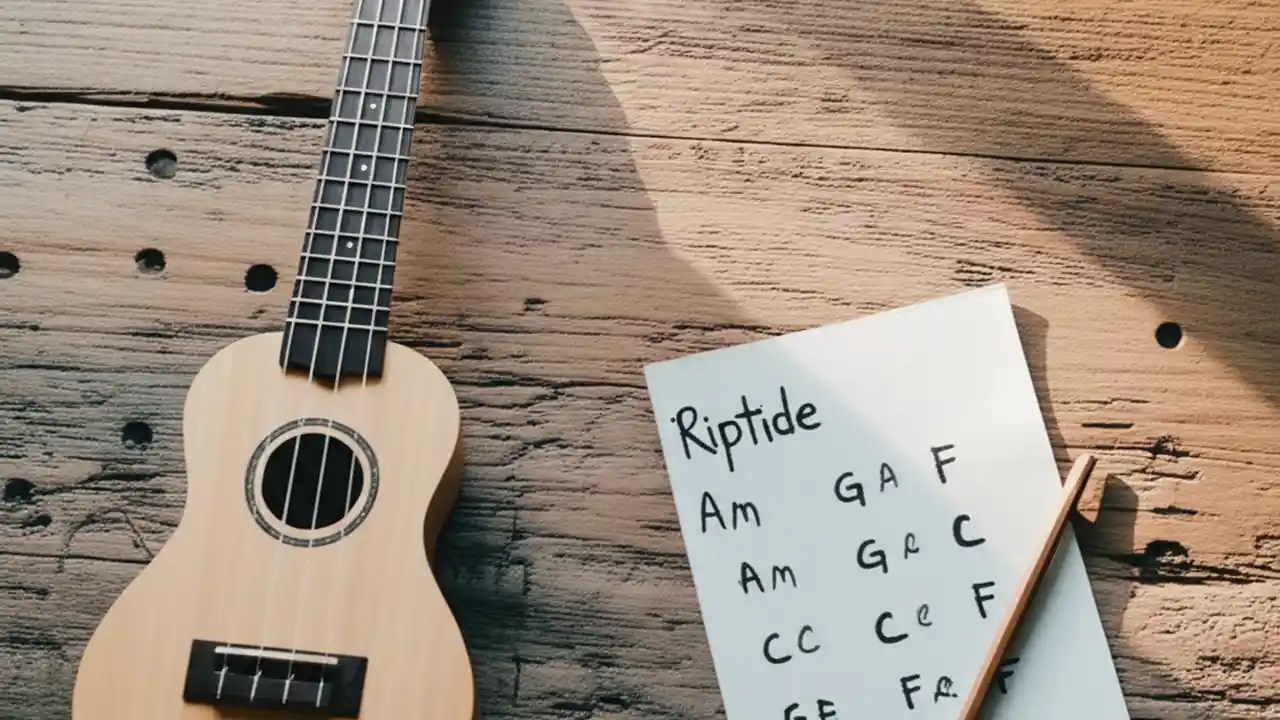 Riptide
Am GA F
Am Ge C
CC Ce F
GE Fe F